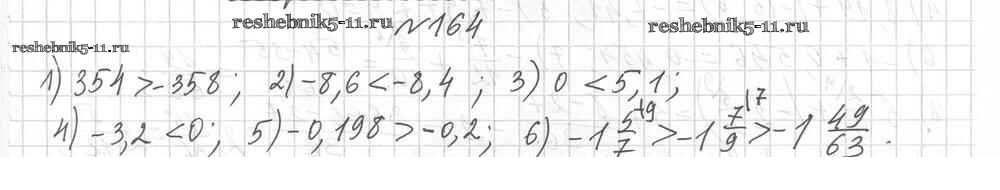 reshebnik5-11.ru №164 reshebnik5-11.ru
reshebnik5-11.ru
1) 354 > -358; 2) -8,6 < -8,4; 3) 0 < 5,1;
4) -3,2 < 0; 5) -0,198 > -0,2; 6) -1 5/7 |9 > -1 7/9 |7 > -1 49/63.